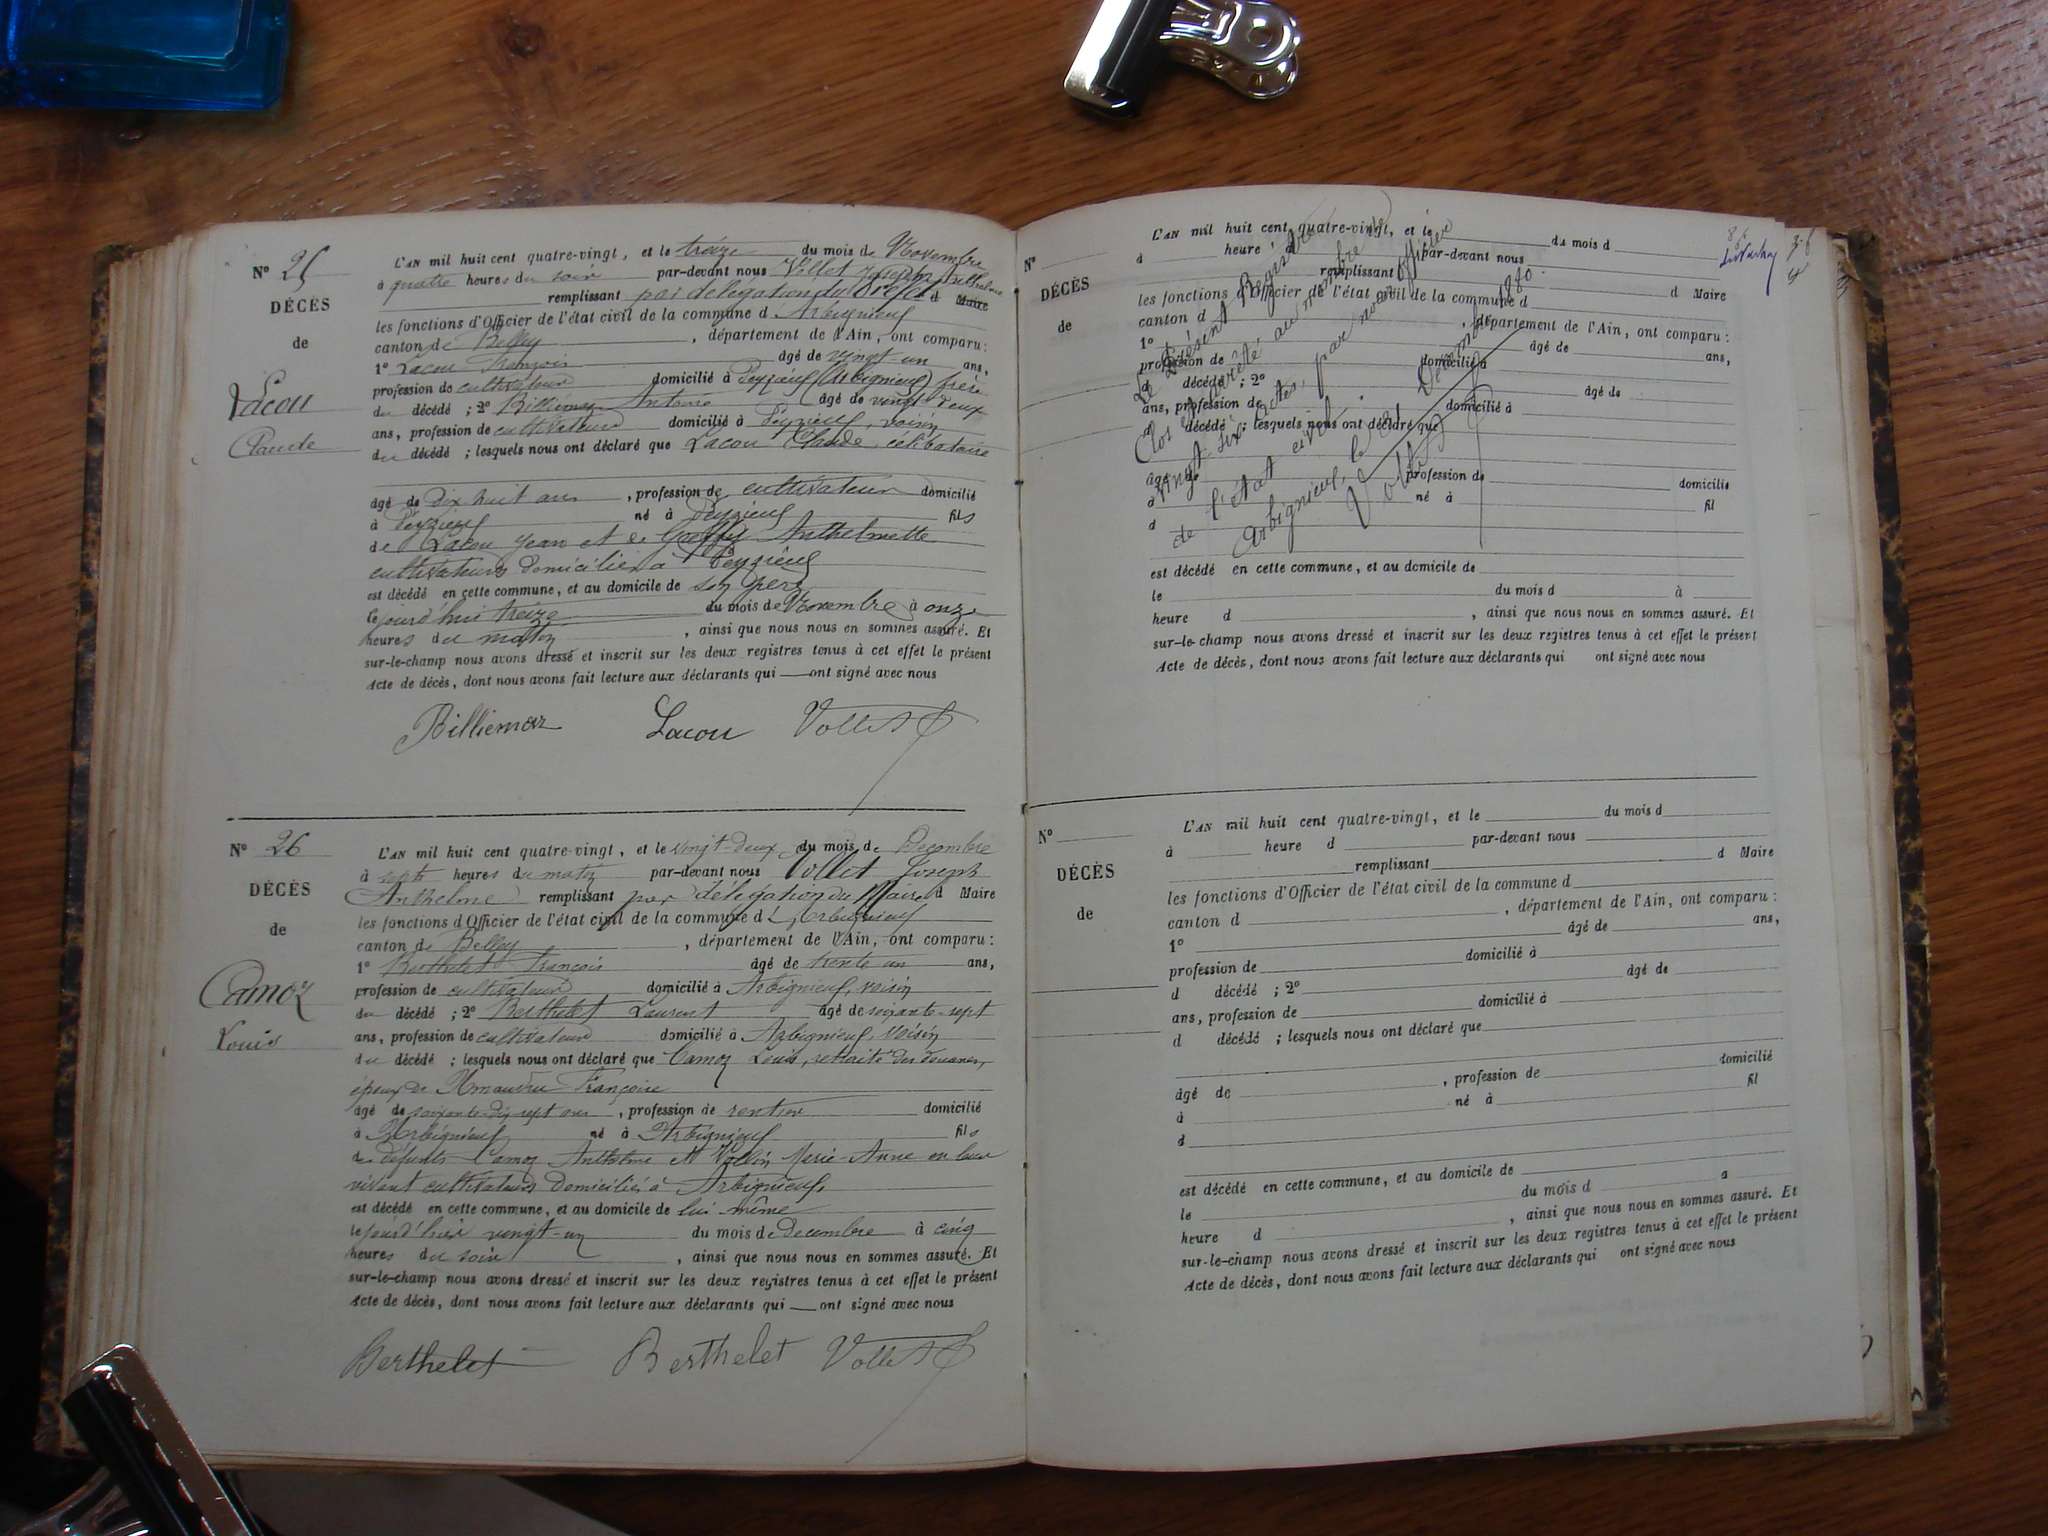 N° 25
DÉCÈS
de
Lacou
Claude
L'AN mil huit cent quatre-vingt, et le treize du mois de Novembre
à quatre heures du soir par-devant nous Vollet Joseph Anthelme
remplissant par délégation du d Maire
les fonctions d'Officier de l'état civil de la commune d Arbignieu
canton de Belley, département de l'Ain, ont comparu :
1° Lacou François âgé de vingt-un ans,
profession de cultivateur domicilié à Peyzieu (Arbignieu) frère
du décédé ; 2° Billiemaz Antoine âgé de vingt-deux
ans, profession de cultivateur domicilié à Peyzieu, voisin
du décédé ; lesquels nous ont déclaré que Lacou Claude, célibataire
âgé de dix huit ans, profession de cultivateur domicilié
à Peyzieu né à Peyzieu fils
de Lacou Jean et de Anthelmette
cultivateurs domiciliés à Peyzieu
est décédé en cette commune, et au domicile de son père
le jourd'hui treize du mois de Novembre à onze
heures du matin, ainsi que nous nous en sommes assuré. Et
sur-le-champ nous avons dressé et inscrit sur les deux registres tenus à cet effet le présent
Acte de décès, dont nous avons fait lecture aux déclarants qui — ont signé avec nous
Billiemaz Lacou Vollet
N° 26
DÉCÈS
de
Camoz
Louis
L'AN mil huit cent quatre-vingt, et le vingt-deux du mois de Decembre
à sept heures du matin par-devant nous Vollet Joseph
Anthelme remplissant par délégation du Maire d Maire
les fonctions d'Officier de l'état civil de la commune d'Arbignieu
canton de Belley, département de l'Ain, ont comparu :
1° Berthelet François âgé de trente un ans,
profession de cultivateur domicilié à Arbignieu, voisin
du décédé ; 2° Berthelet Laurent âgé de soixante-sept
ans, profession de cultivateur domicilié à Arbignieu, voisin
du décédé ; lesquels nous ont déclaré que Camoz Louis, retraité des douanes,
époux de Françoise
âgé de soixante-dix sept ans, profession de rentier domicilié
à Arbignieu né à Arbignieu fils
de défunts Camoz Anthelme et Vollin Marie-Anne en leur
vivant cultivateurs domiciliés à Arbignieu,
est décédé en cette commune, et au domicile de lui même
le jourd'hier vingt-un du mois de decembre à cinq
heures du soir, ainsi que nous nous en sommes assuré. Et
sur-le-champ nous avons dressé et inscrit sur les deux registres tenus à cet effet le présent
Acte de décès, dont nous avons fait lecture aux déclarants qui — ont signé avec nous
Berthelet Berthelet Vollet
N°
DÉCÈS
de
L'AN mil huit cent quatre-vingt, et le du mois d
à heure d par-devant nous
remplissant d Maire
les fonctions d'Officier de l'état civil de la commune d
canton d , département de l'Ain, ont comparu :
1° âgé de ans,
profession de domicilié à
d décédé ; 2° âgé de
ans, profession de domicilié à
d décédé ; lesquels nous ont déclaré que
âgé de profession de domicilié
à né à fil
d
est décédé en cette commune, et au domicile de
le du mois d à
heure d , ainsi que nous nous en sommes assuré. Et
sur-le-champ nous avons dressé et inscrit sur les deux registres tenus à cet effet le présent
Acte de décès, dont nous avons fait lecture aux déclarants qui ont signé avec nous
Le Présent Registre
Clos et arrêté au nombre de
vingt six actes, par nous officier
de l'état civil.
Arbignieu, le Décembre 1880.
Vollet
N°
DÉCÈS
de
L'AN mil huit cent quatre-vingt, et le du mois d
à heure d par-devant nous
remplissant d Maire
les fonctions d'Officier de l'état civil de la commune d
canton d , département de l'Ain, ont comparu :
1° âgé de ans,
profession de domicilié à
d décédé ; 2° âgé de
ans, profession de domicilié à
d décédé ; lesquels nous ont déclaré que
âgé de , profession de domicilié
à né à fil
d
est décédé en cette commune, et au domicile de
le du mois d à
heure d , ainsi que nous nous en sommes assuré. Et
sur-le-champ nous avons dressé et inscrit sur les deux registres tenus à cet effet le présent
Acte de décès, dont nous avons fait lecture aux déclarants qui ont signé avec nous